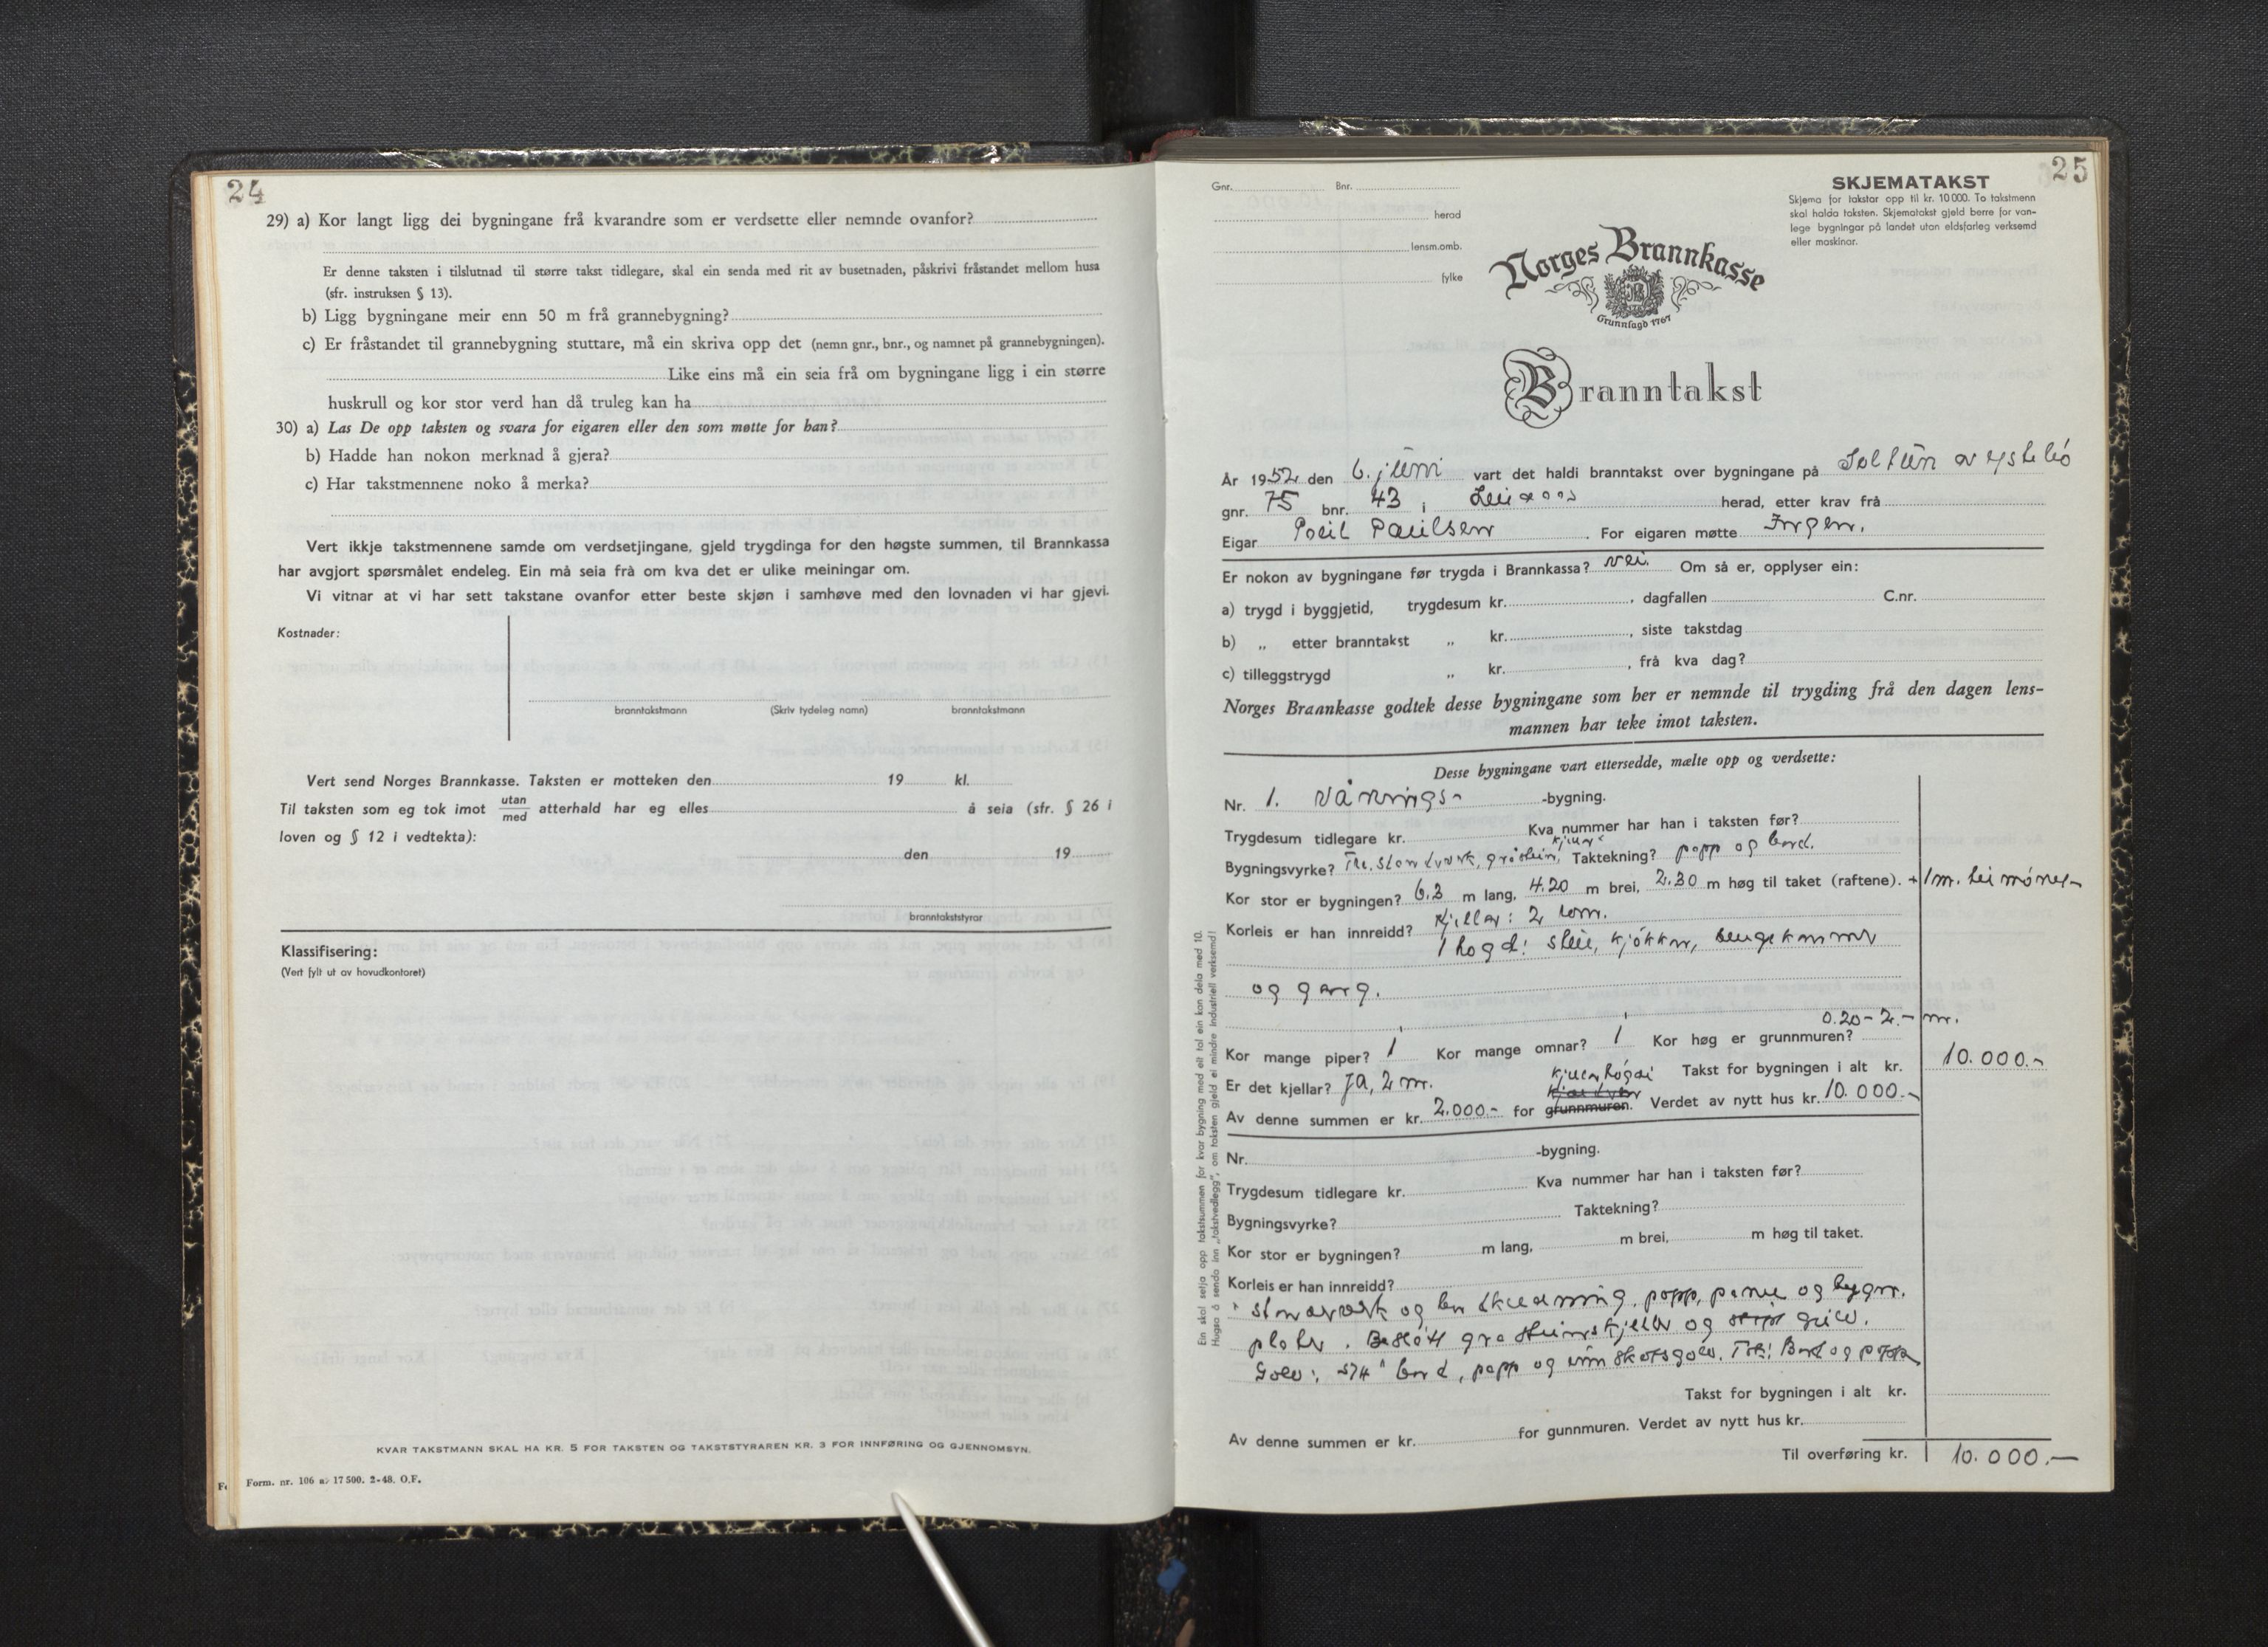 24
29) a) Kor langt ligg dei bygningane frå kvarandre som er verdsette eller nemnde ovanfor?
Er denne taksten i tilslutnad til større takst tidlegare, skal ein senda med rit av busetnaden, påskrivi fråstandet mellom husa
(sfr. instruksen § 13).
b) Ligg bygningane meir enn 50 m frå grannebygning?
c) Er fråstandet til grannebygning stuttare, må ein skriva opp det (nemn gnr., bnr., og namnet på grannebygningen).
Like eins må ein seia frå om bygningane ligg i ein større
huskrull og kor stor verd han då truleg kan ha
30) a) Las De opp taksten og svara for eigaren eller den som møtte for han?
b) Hadde han nokon merknad å gjera?
c) Har takstmennene noko å merka?
Vert ikkje takstmennene samde om verdsetjingane, gjeld trygdinga for den høgste summen, til Brannkassa
har avgjort spørsmålet endeleg. Ein må seia frå om kva det er ulike meiningar om.
Vi vitnar at vi har sett takstane ovanfor etter beste skjøn i samhøve med den lovnaden vi har gjevi.
Kostnader:
branntakstmann (Skriv tydeleg namn) branntakstmann
Vert send Norges Brannkasse. Taksten er motteken den 19 kl.
Til taksten som eg tok imot utan med atterhald har eg elles å seia (sfr. § 26 i
loven og § 12 i vedtekta):
den 19
branntakststyrar
Klassifisering:
(Vert fylt ut av hovudkontoret)
KVAR TAKSTMANN SKAL HA KR. 5 FOR TAKSTEN OG TAKSTSTYRAREN KR. 3 FOR INNFØRING OG GJENNOMSYN.
Form. nr. 106 a. 17500. 2-48. O.F.
25
Gnr. Bnr.
herad
lensm.omb.
fylke
SKJEMATAKST
Skjema for takstar opp til kr. 10 000. To takstmenn
skal halda taksten. Skjematakst gjeld berre for van-
lege bygningar på landet utan eldsfarleg verksemd
eller maskinar.
Norges Brannkasse
Grunnlagd 1767
Branntakst
År 1952 den 6. juni vart det haldi branntakst over bygningane på Soltun av
gnr. 75 bnr. 43 i herad, etter krav frå
Eigar Poul Paulsen. For eigaren møtte Ingen.
Er nokon av bygningane før trygda i Brannkassa? nei. Om så er, opplyser ein:
a) trygd i byggjetid, trygdesum kr. , dagfallen C.nr.
b) „ etter branntakst „ kr. , siste takstdag
c) tilleggstrygd „ kr. , frå kva dag?
Norges Braankasse godtek desse bygningane som her er nemnde til trygding frå den dagen lens-
mannen har teke imot taksten.
Desse bygningane vart ettersedde, mælte opp og verdsette:
Nr. 1. Vånings- -bygning.
Trygdesum tidlegare kr. Kva nummer har han i taksten før?
Bygningsvyrke? Tre, standverk, gråstein, kjellar Taktekning? papp og bord.
Kor stor er bygningen? 6.3 m lang, 4.20 m brei, 2.30 m høg til taket (raftene). + 1 m. til
Korleis er han innreidd? Kjellar: 2 rom.
1 hogd: stue, kjøkken, sengekammer
og gang.
0.20 - 2.- m.
Kor mange piper? 1 Kor mange omnar? 1 Kor høg er grunnmuren?
Er det kjellar? Ja, 2 m. Takst for bygningen i alt kr. 10.000.-
Av denne summen er kr. 2.000.- for grunnmuren. Verdet av nytt hus kr. 10.000.-
Nr. -bygning.
Trygdesum tidlegare kr. Kva nummer har han i taksten før?
Bygningsvyrke? Taktekning?
Kor stor er bygningen? m lang, m brei, m høg til taket.
Korleis er han innreidd?
standverk og bordkledning, papp, panel og bygn.
plater. gråsteinskjeller og golv.
Golv: 5/4" bord, papp og Tak: Bord og papp
Takst for bygningen i alt kr.
Av denne summen er kr. for gunnmuren. Verdet av nytt hus kr.
Til overføring kr. 10.000.-
Ein skal setja opp takstsummen for kvar bygning med eit tal ein kan dela med 10.
Hugso å senda inn „takstvedlegg", om taksten gjeld ei mindre industriell verksemd!